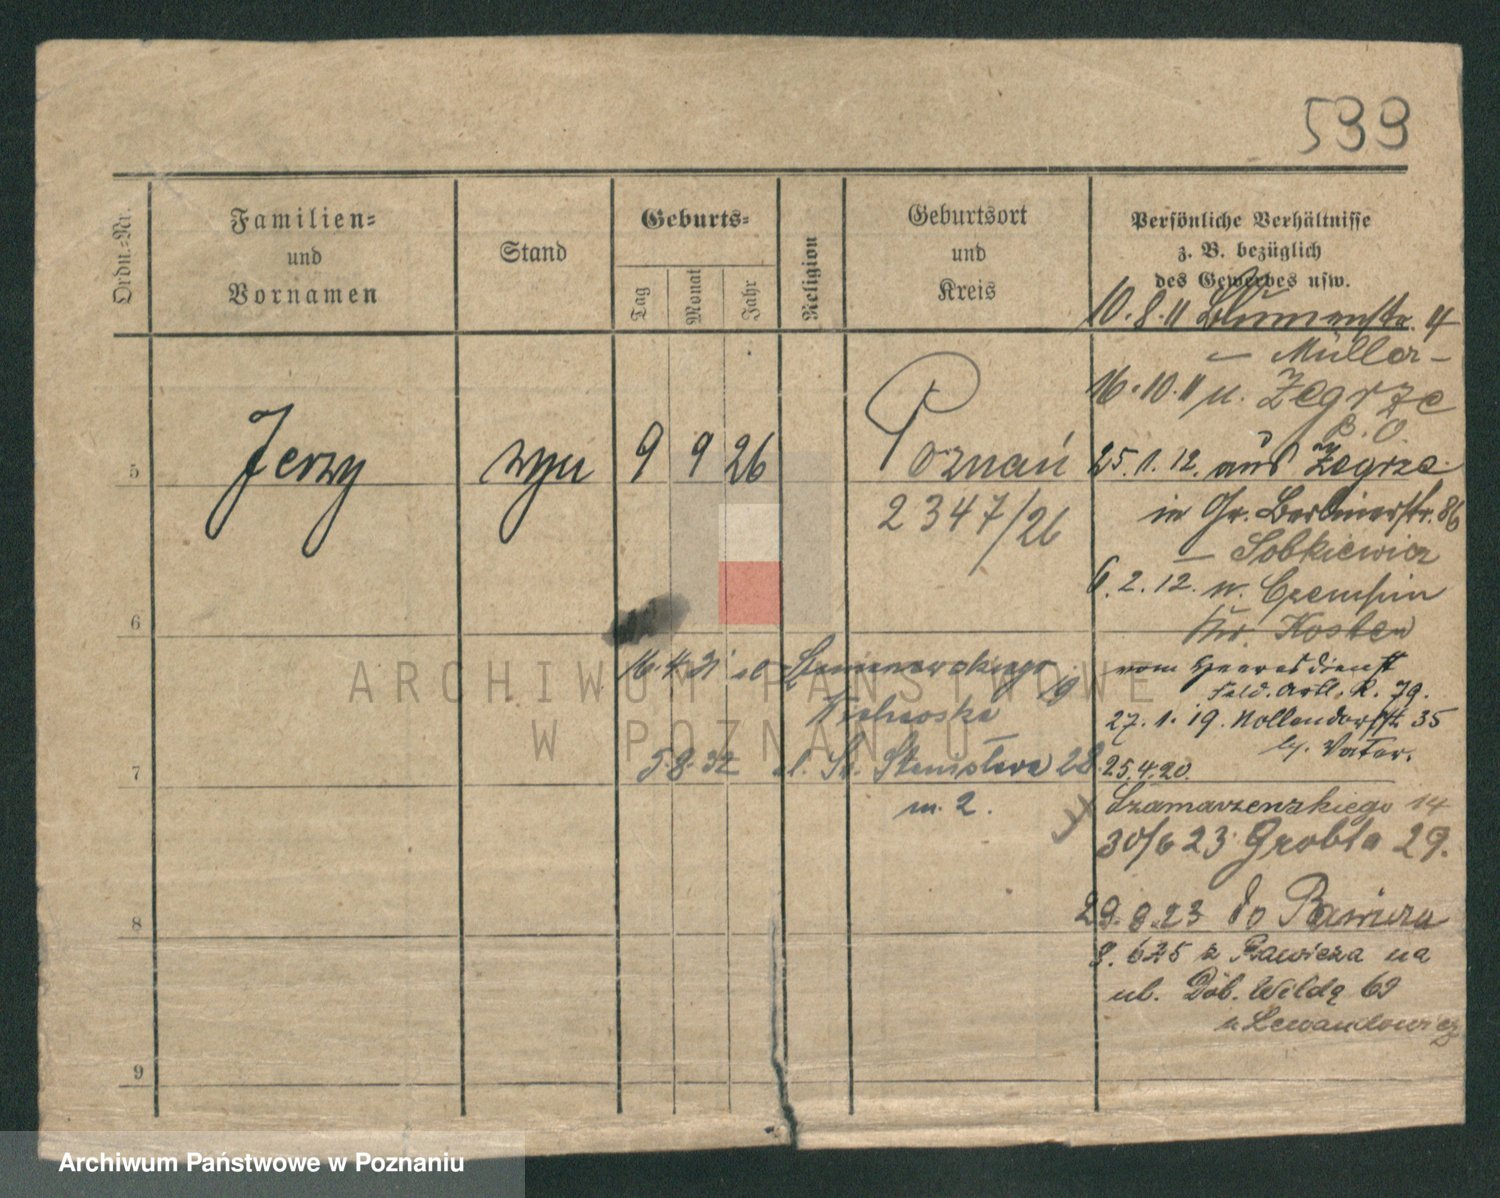 533
Ordn.-Nr.
Familien-
und
Vornamen
Stand
Geburts-
Tag
Monat
Jahr
Religion
Geburtsort
und
Kreis
Persönliche Verhältnisse
z. B. bezüglich
des Gewerbes usw.
5
Jerzy syn 9 9 26 Poznań
2347/26
6
7
8
9
16.4.31 ul.
5.8.32 ul. Św. Stanisława 28
m. 2.
10.8.11 Blumenstr. 4
– Müller –
16.10.11 n. Zegrze
25.1.12. aus Zegrze
in Gr. Berlinerstr. 86
– Sobkiewicz
6.2.12. n. Czempin
Kr. Kosten
vom Heeresdienst
Feld. Artl. R. 79.
27.1.19. Nollendorfstr. 35
b. Vater.
25.4.20.
Szamarzewskiego 14
30/6 23 Grobla 29.
29.8.23 do Rawicza
8.6.25 z Rawicza na
ul. Dol. Wilda 69
u Lewandowicz
ARCHIWUM PAŃSTWOWE
W POZNANIU
Archiwum Państwowe w Poznaniu